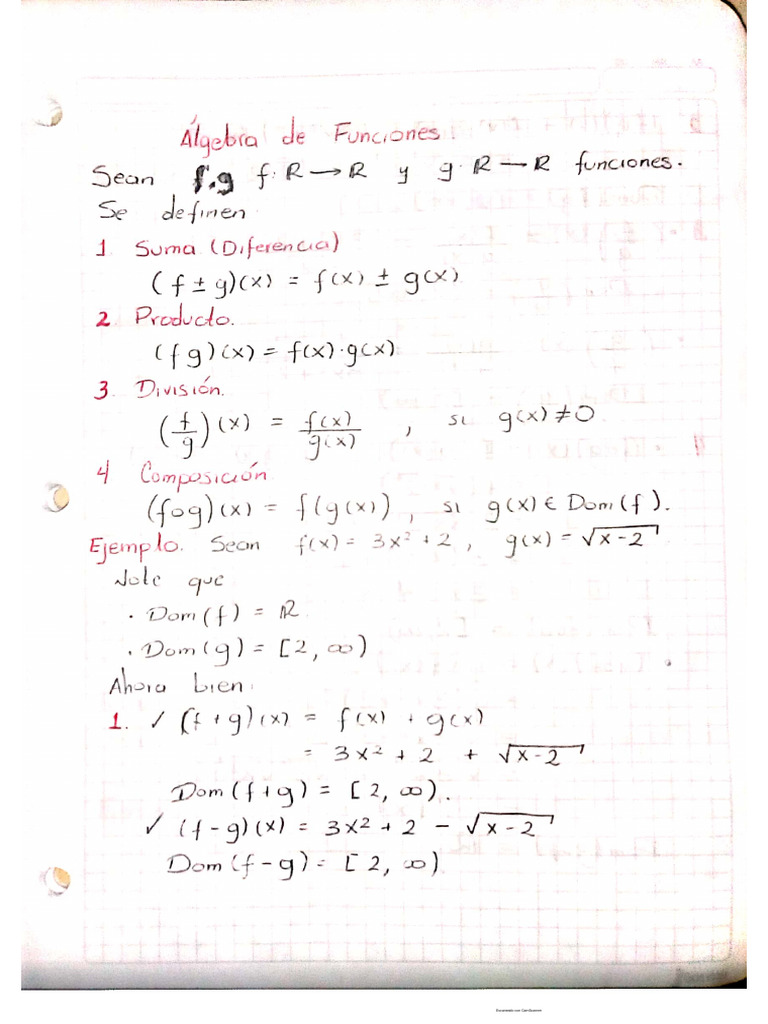 Álgebra de Funciones.
Sean f,g f: ℝ → ℝ y g: ℝ → ℝ funciones.
Se definen
1 Suma (Diferencia)
(f ± g)(x) = f(x) ± g(x)
2 Producto.
(fg)(x) = f(x)·g(x)
3. División.
(f/g)(x) = f(x)/g(x) , si g(x) ≠ 0
4 Composición
(f∘g)(x) = f(g(x)) , si g(x) ∈ Dom(f).
Ejemplo. Sean f(x) = 3x² + 2 , g(x) = √(x-2)
Note que
· Dom(f) = ℝ
· Dom(g) = [2, ∞)
Ahora bien:
1. ✓ (f + g)(x) = f(x) + g(x)
= 3x² + 2 + √(x-2)
Dom(f+g) = [2, ∞).
✓ (f - g)(x) = 3x² + 2 - √(x-2)
Dom(f - g) = [2, ∞)
Escaneado con CamScanner